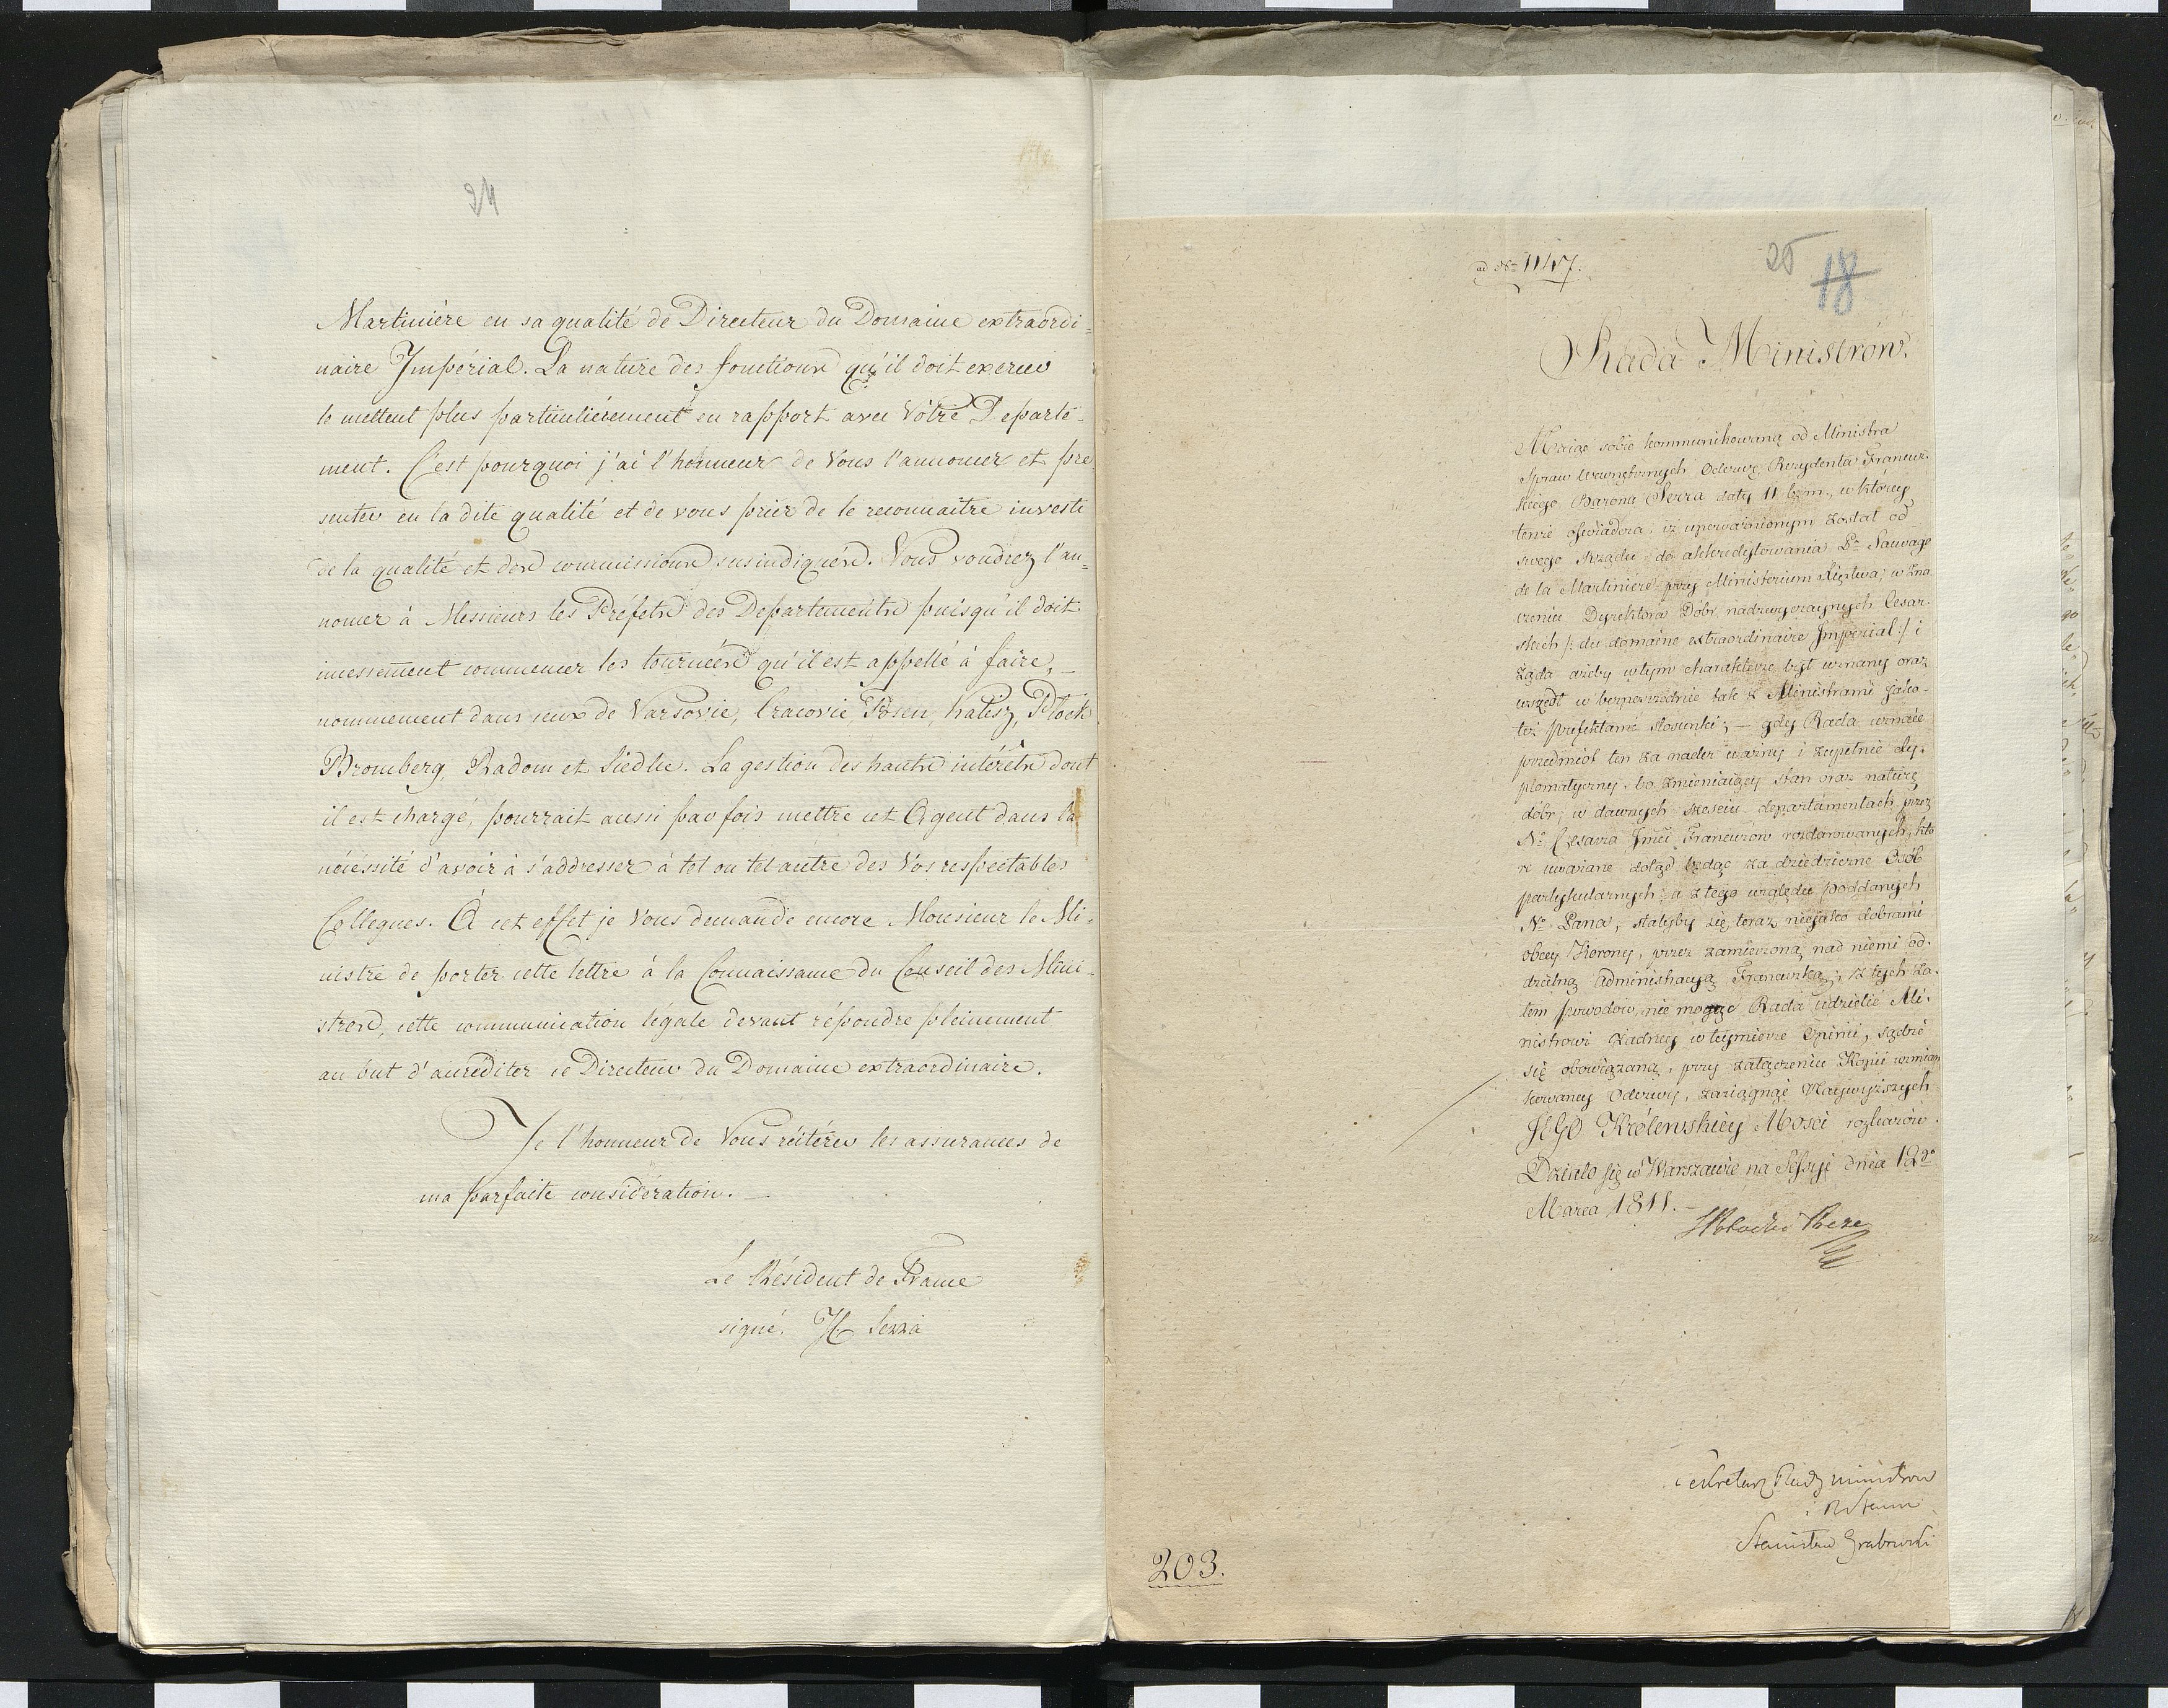 24
Martinière en sa qualité de Directeur du Domaine extraordi=
naire Impérial. La nature des fonctions qu'il doit exercer
le mettent plus particulièrement en rapport avec Vôtre Departe-
ment. C'est pourquoi j'ai l'honneur de Vous l'annoncer et pré
senter en la dite qualité et de vous prier de le reconnaitre investi
de la qualité et des commissions susindiquées. Vous voudrez l'an=
noncer à Messieurs les Préfets des Departements puisqu'il doit
incessement commencer les tournées qu'il est appellé à faire,
nommement dans ceux de Varsovie, Cracovie, Posen, Kalisz, Plock
Bromberg, Radom et Siedlce. La gestion des hauts intérêts dont
il est chargé, pourrait aussi par fois mettre cet Agent dans la
nécessité d'avoir à s'addresser à tel ou tel autre des Vos respectables
Collegues. À cet effet je Vous demande encore Monsieur le Mi-
nistre de porter cette lettre à la Connaissance du Conseil des Mini-
stres, cette communication légale devant répondre pleinement
au but d'accréditer ce Directeur du Domaine extraordinaire.
J'e l'honneur de Vous réitérer les assurances de
ma parfaite considération. —
Le Résident de France
signé. H Serra
ad No 1147.
25
18
Rada Ministrów.
Maiąc sobie kommunikowaną od Ministra
Spraw Wewnętrznych Odezwę Rezydenta Francuz-
kiego Barona Serra daty 11 b.m., w którey
tenże oświadcza, iż upoważnionym został od
swego Rządu do akkredytowania Pa Sauvage
de la Martiniere przy Ministerium Xięstwa, w zna
czeniu Dyrektora Dóbr nadzwyczaynych Cesar-
skich /: du domaine extraordinaire Impérial :/ i
żąda ażeby w tym charakterze był uznany oraz
wszedł w bezpośrednie tak z Ministrami jako-
też Prefektami stosunki; — gdy Rada uznaie
przedmiot ten za nader ważny i zupełnie dy-
plomatyczny, bo zmieniaiący stan oraz naturę
dóbr, w dawnych sześciu departamentach przez
No Cesarza Jmci Francuzów rozdarowanych, któ
re uważane dotąd będąc za dziedziczne Osób
partykularnych, a z tego względu poddanych
No Pana, stałyby się teraz niejako dobrami
obcey Korony, przez zamierzoną nad niemi od-
dzielną Administracyą Francuzką; z tych za-
tem powodów, nie mogąc Rada udzielić Mi-
nistrowi żadney w tey mierze Opinii, sądzi
się obowiązaną, przy załączeniu Kopii wzmian
kowaney Odezwy, zaciągnąć Naywyższych
JEGO Królewskiey Mości rozkazów.
Działo się w Warszawie na Sessyi dnia 12go
Marca 1811. —
Sekretarz Rady ministrow
Stanisław Grabowski
203.